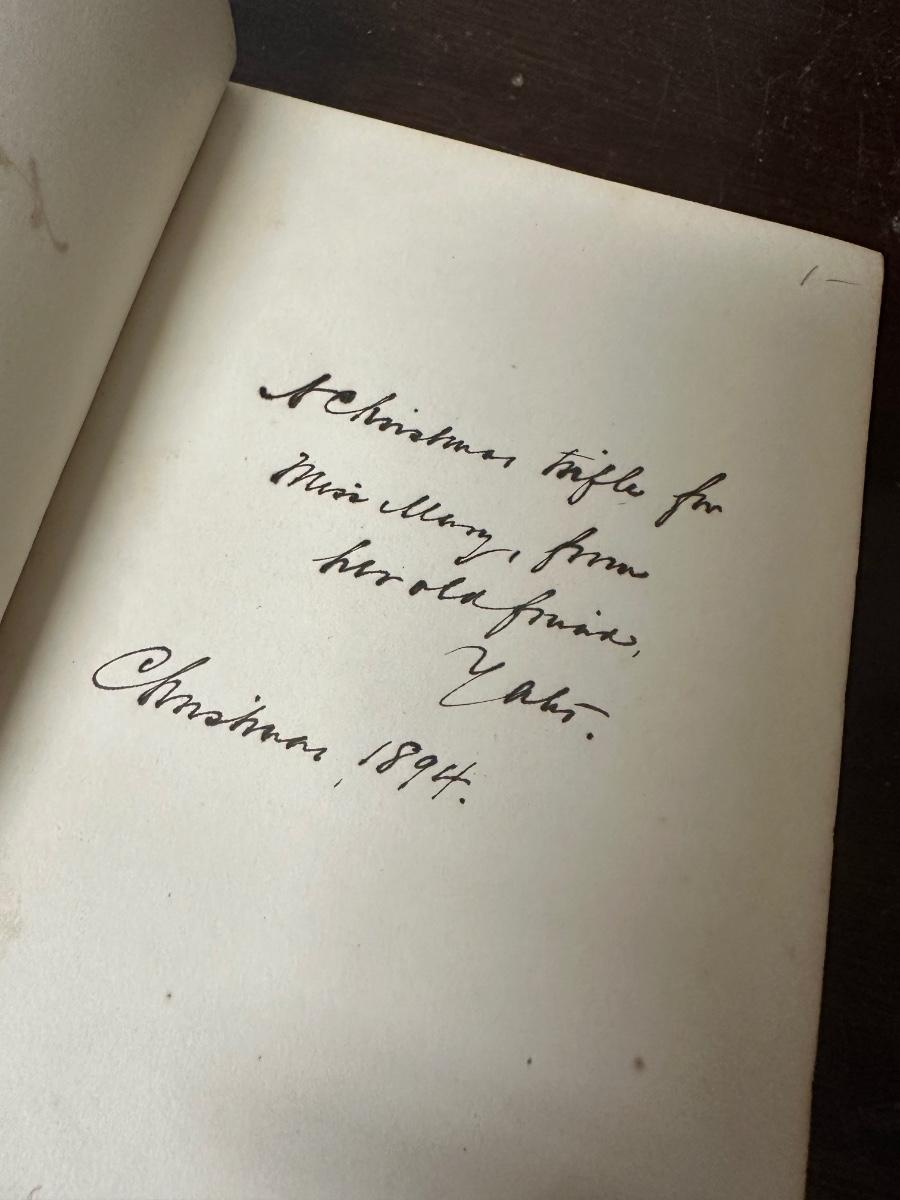 1-
A Christmas trifle for
Miss Mary, from
her old friend,
Christmas, 1894.